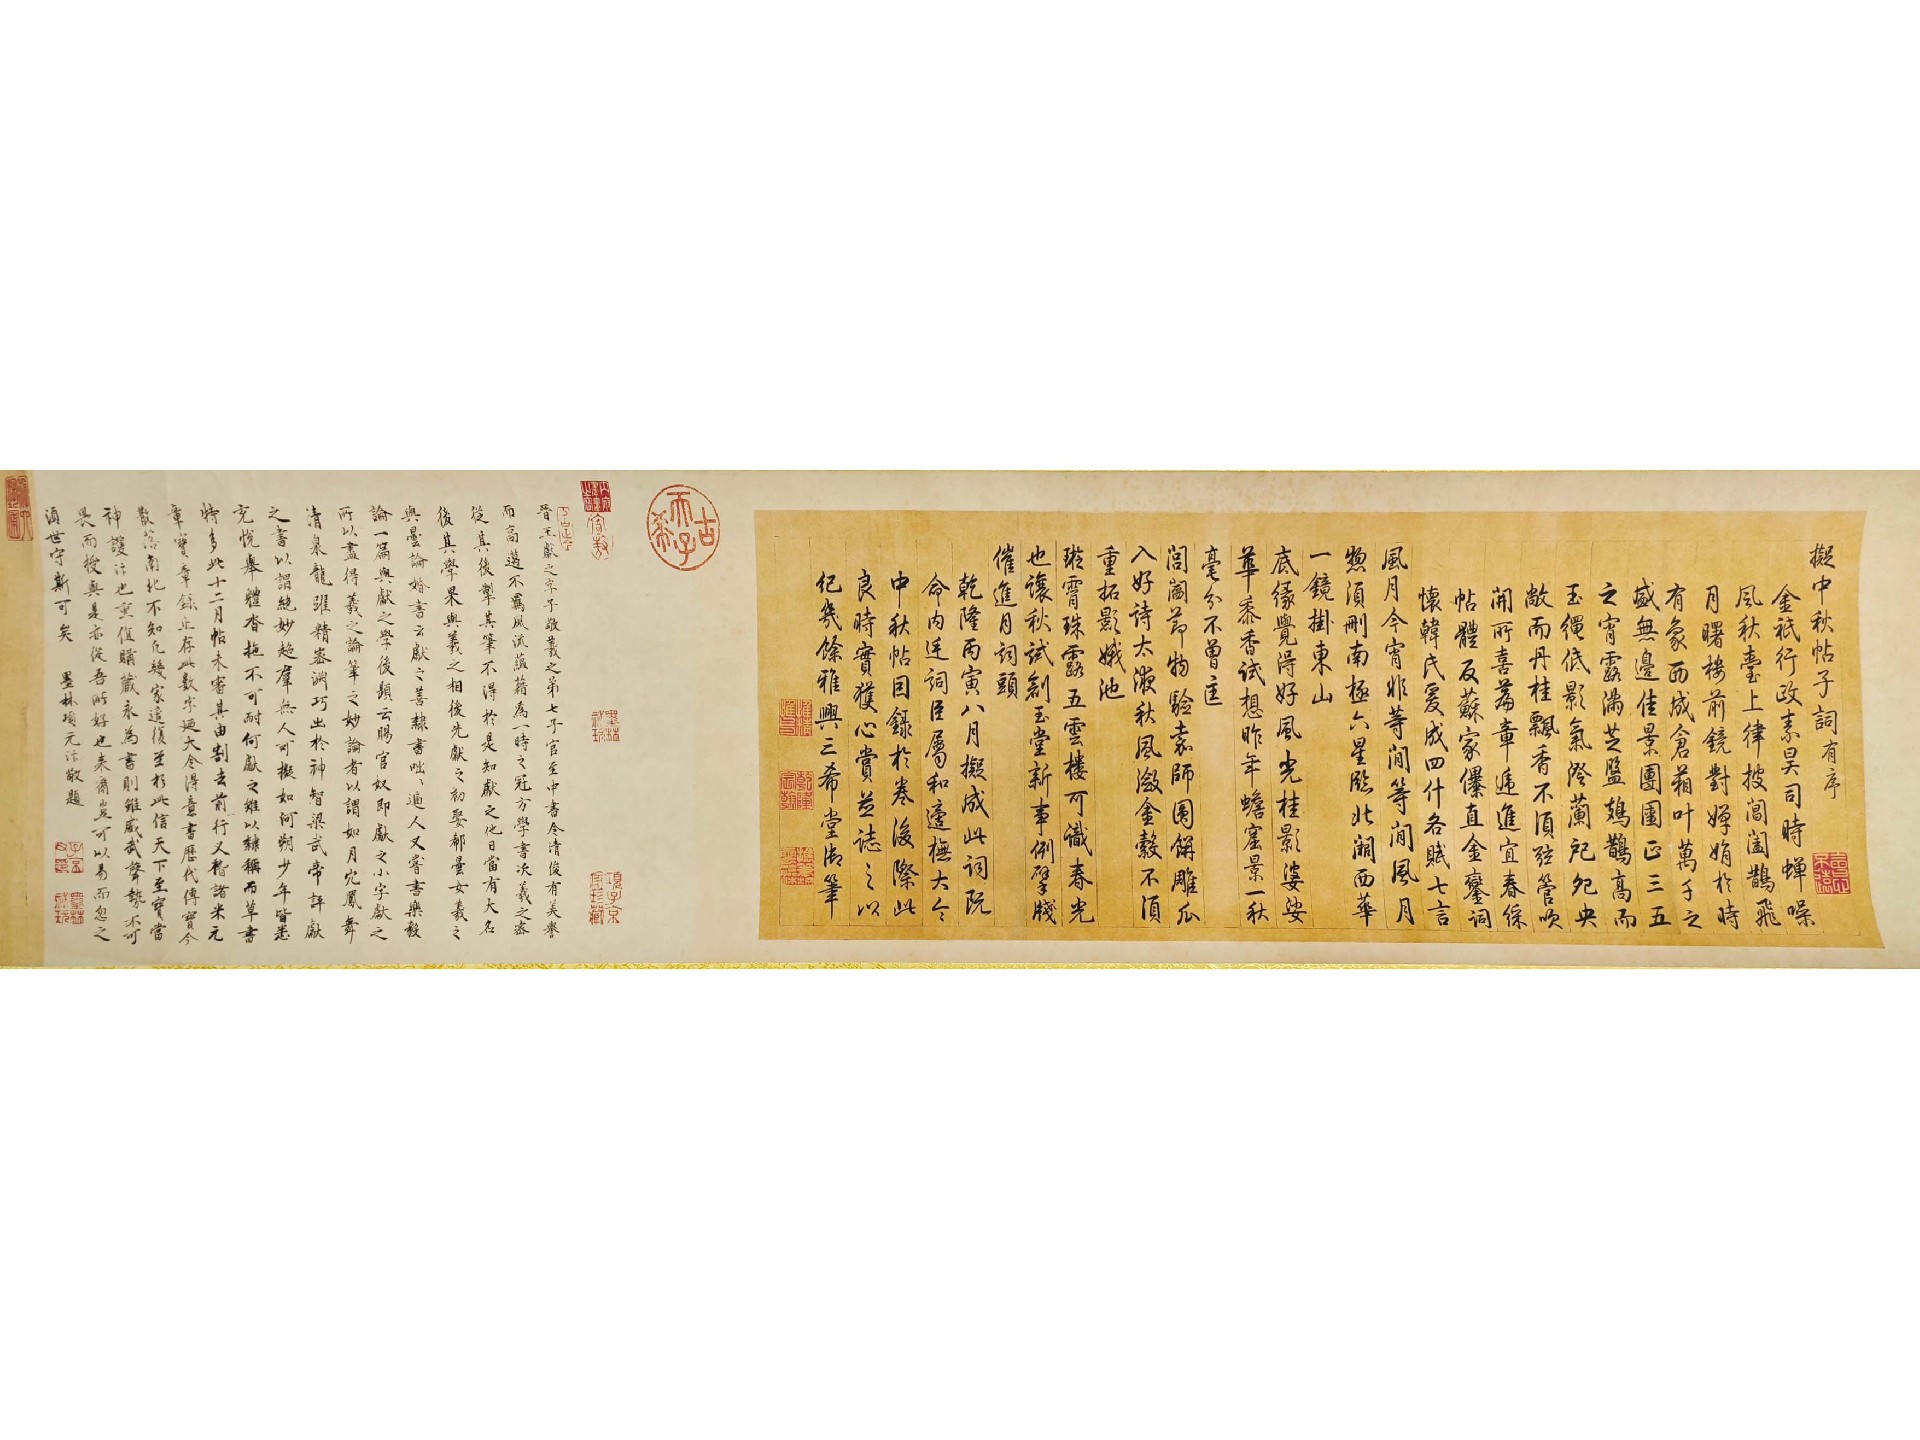 擬中秋帖子詞有序
金祇行政素昊司時蟬噪
風秋臺上律披閶闔鵲飛
月曙樓前鏡對嬋娟於時
有象西成倉箱叶萬千之
盛無邊佳景團圞正三五
之宵露滿芝盤鳷鵲高而
玉繩低影氣澄蘭戺夗央
敞而丹桂飄香不須弦管吹
開所喜篇章遞進宜春綵
帖體反蘇家儤直金鑾詞
懷韓氏爰成四什各賦七言
風月今宵非等閒等閒風月
惣須刪南極六星臨北闕西華
一鏡掛東山
底緣覺得好風光桂影婆娑
華黍香試想昨年蟾窟景一秋
毫分不曾匡
閭闔節物驗嘉師圓餅雕瓜
入好詩太液秋風瀲金縠不須
重拓影娥池
璇霄珠露五雲樓可識春光
也讓秋試創玉堂新事例擘牋
催進月詞頭
乾隆丙寅八月擬成此詞既
命內廷詞臣屬和適橅大令
中秋帖因錄於卷後際此
良時實獲心賞並誌之以
紀幾餘雅興三希堂御筆
古希天子
晉王獻之字子敬羲之第七子官至中書令清俊有美譽
而高邁不羈風流蘊藉為一時之冠方學書次羲之密
從其後掣其筆不得於是知獻之他日當有大名
後其學果與羲之相後先獻之初娶郗曇女羲之
與曇論婚書云獻之善隸書咄咄逼人又嘗書樂毅
論一篇與獻之學後題云賜官奴即獻之小字獻之
所以盡得羲之論筆之妙論者以謂如丹穴鳳舞
清泉龍躍精密淵巧出於神智梁武帝評獻
之書以謂絕妙超羣無人可擬如河朔少年皆悉
充悅舉體沓拖不可耐何獻之雖以隸稱而草書
特多此十二月帖未審其由割去前行又嘗諸米元
章寶章錄止存此數字迺大令得意書歷代傳寶今
散落南北不知凡幾家這復至於此信天下至寶當
神護訶也重值購藏永為書則雖威武聲勢不可
畏而授與是亦從吾所好也來裔豈可以易而忽之
須世守斯可矣 墨林項元汴敬題